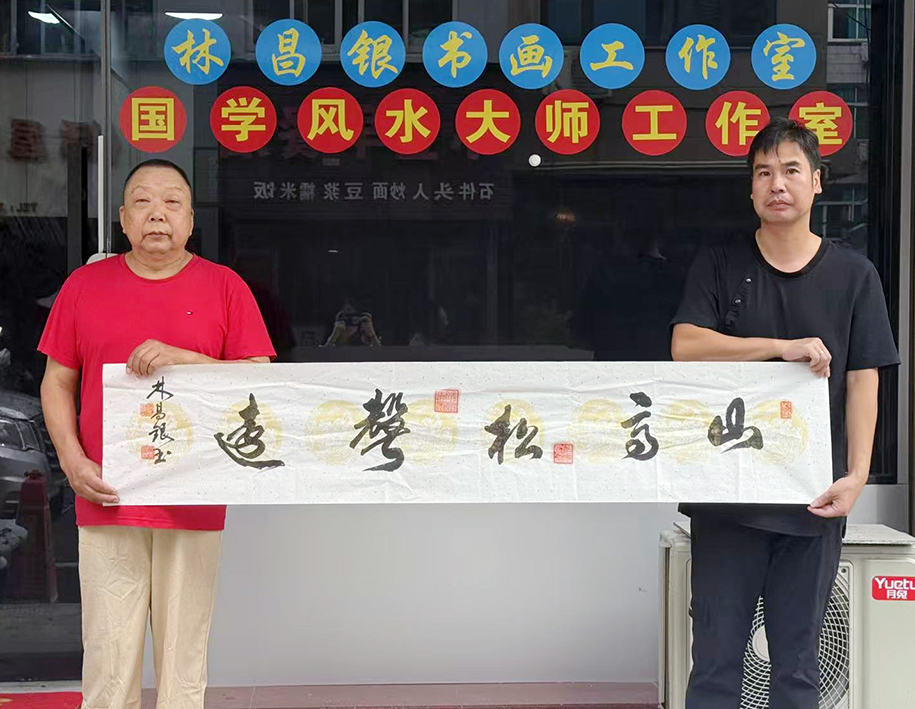 林昌银书画工作室
国学风水大师工作室
石件头人炒面豆浆糯米饭
山高松聲遠
林昌银书
Yuetu
月兔